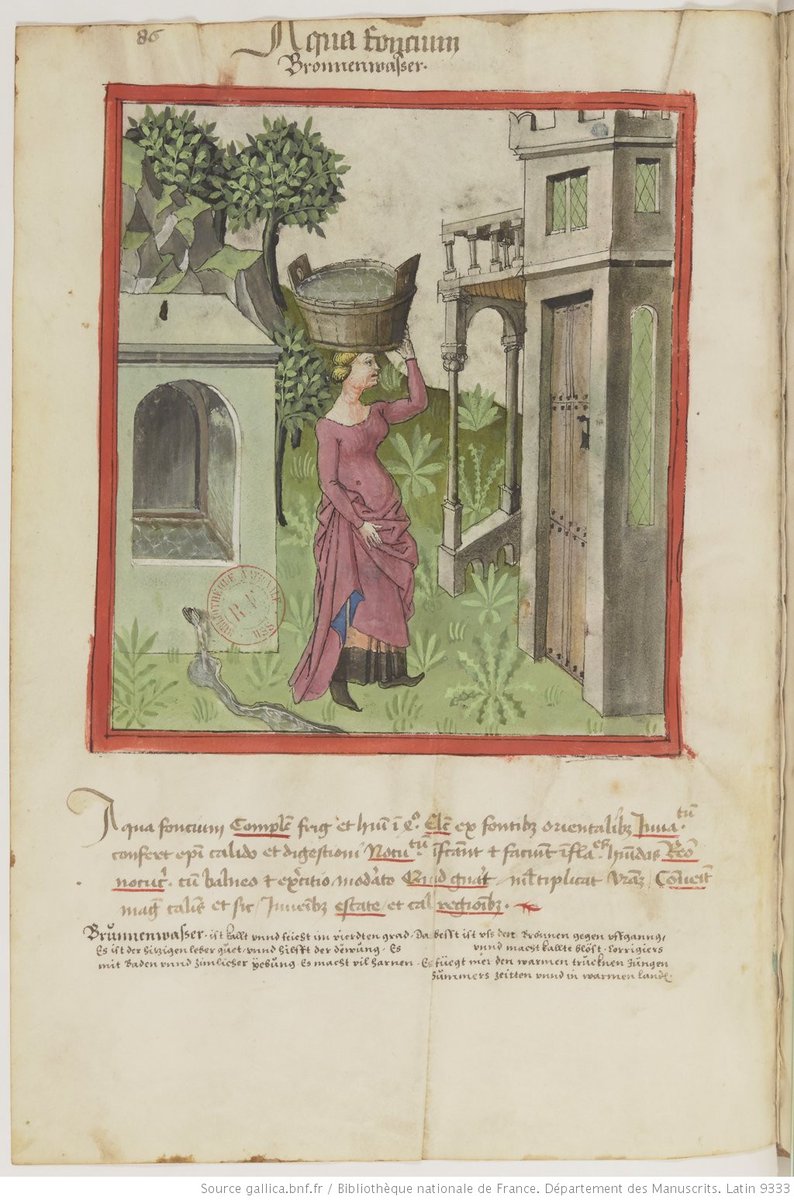 86
Aqua foncium
Bronnenwasser.
BIBLIOTHÈQUE NATIONALE MSS
R.F.
Aqua foncium Complē frig et hūi ī 4º Elēc ex fontibȝ orientalibȝ Iuuatū
confert epi calido et digestioni Nocutū īfcāt et faciūt īflaōēȝ hūidas Reō
nocuc̄ cū balneo et exercitio modāto Quid gnāt mltiplicat vrāȝ Cōueīt
mag calīs et sic Iuuenibȝ estate et cal regionibȝ.
Brunnenwasser. ist kallt vnnd feicht im vierdten grad. Da beist ist vss dem Bronnen gegen vffganng,
Es ist der hitzigen leber guet, vnnd hilfft der dewung. Es vnnd macht kallte blöst. Corrigiers
mit Baden vnnd zimlicher yebung Es macht vil harnen. Es füegt mer den warmen trucknen Jungen
Summers zeitten vnnd in warmen landen.
Source gallica.bnf.fr / Bibliothèque nationale de France. Département des Manuscrits. Latin 9333